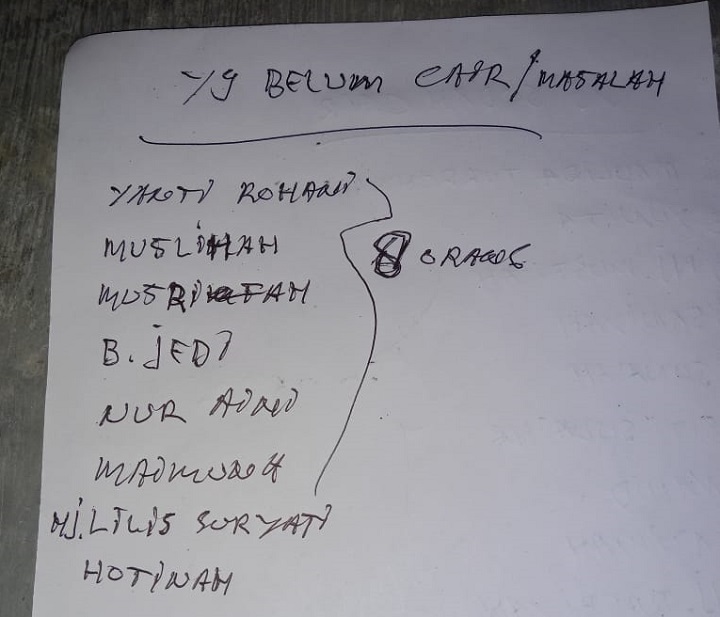 Yg BELUM CAIR/MASALAH
YANTI ROHANI
MUSLIHAH
B. JEDI
NUR AINI
MAIMUNAH
8 ORANG
Hj. LILIS SURYATI
HOTINAH